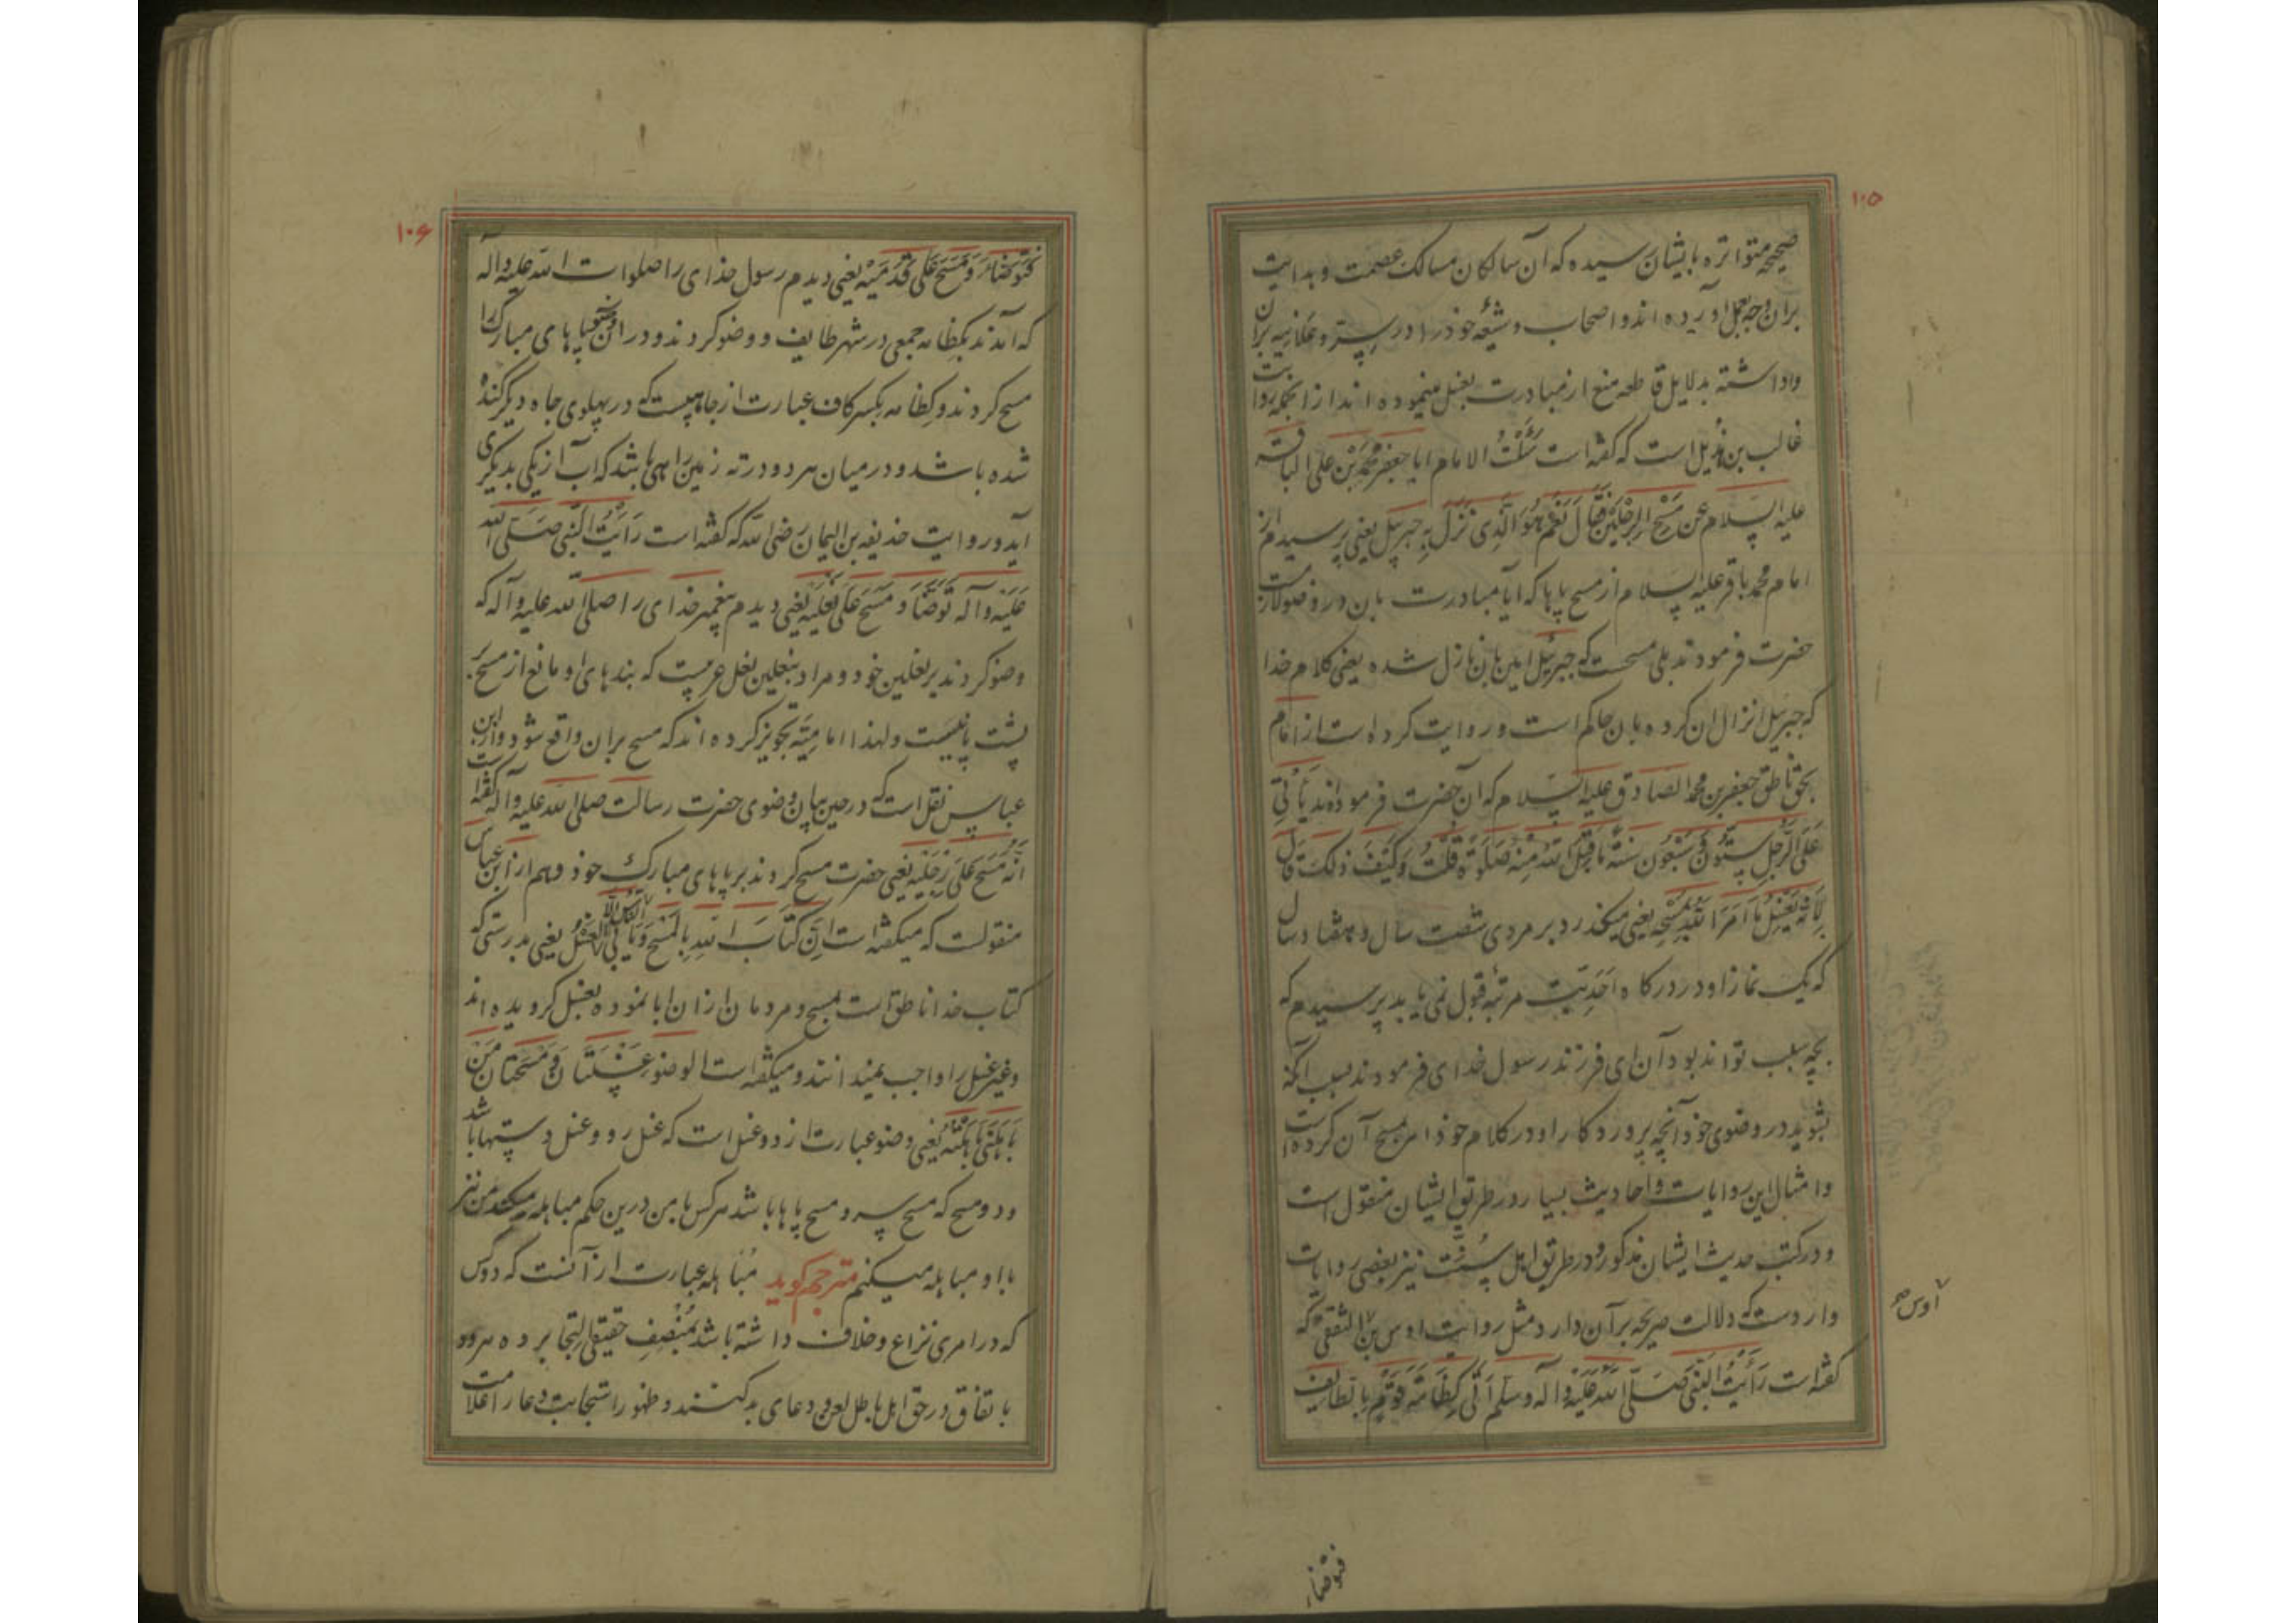 ۱۰۵
صحیحه متواتره بایشان رسیده که آن سالکان مسالک عصمت و هدایت
بران وجه بعمل آورده اند و اصحاب و شیعهٔ خود را در سِر و علانیه بران
واداشته بدلایل قاطعه منع از مبادرت بغسل مینموده اند از انجمله روایت
غالب بن هُذیل است که کفته است سَئَلْتُ الامام ابا جعفر محمد بن علی الباقر
علیه السلام عن مَسْحِ الرِجْلَیْن فَقالَ نَعَم هُوَ الَّذی نَزَلَ بِهِ جبرئیل یعنی پرسیدم از
امام محمد باقر علیه السلام از مسح پاها که آیا مبادرت بان در وضو لازمست
حضرت فرمودند بلی مسحست که جبرئیل امین بان نازل شده یعنی کلام خدا
که جبرئیل انزال ان کرده بان حاکم است و روایت کرده است از امام
بحق ناطق جعفر بن محمد الصادق علیه السلام که آن حضرت فرموده اند یَأتی
عَلَی الرَّجُلِ سِتُّونَ وَ سَبْعُون سَنَةً ما قَبِلَ اللهُ مِنْهُ صَلوةً قُلْتُ وَ کَیْفَ ذلِکَ قال
لِاَنَّهُ یَغْسِلُ ما اَمَرَ اللهُ بِمَسْحِهِ یعنی میکذرد بر مردی شصت سال و هفتاد سال
که یک نماز او در درکاه اَحَدِیَّت مرتبهٔ قبول نمی یابد پرسیدم که
بچه سبب تواند بود آن ای فرزند رسول خدای فرمودند بسبب آنکه
بشوید در وضوی خود آنچه پروردکار او در کلام خود امر بمسح آن کرده است
و امثال این روایات و احادیث بسیار در طریق ایشان منقول است
و در کتب حدیث ایشان مذکور و در طریق اهل سُنّت نیز بعضی روایات
واردست که دلالت صریحه بر آن دارد مثل روایت اوس بن الثقفی که
کفته است رَأَیْتُ النَّبی صَلَّی اللهُ عَلَیْهِ وَ آلِه وَ سَلَّم اَتی کِظامَةَ قَوْمٍ بالطایف
اوس
فتوضاء
۱۰۶
فَتَوَضَّاءَ وَ مَسَحَ عَلی قَدَمَیْهِ یعنی دیدم رسول خدای را صلوات الله علیه و اله
که آمدند بکِظامه جمعی در شهر طایف و وضو کردند و در ان وضو پاهای مبارک را
مسح کردند و کِظامه بکسر کاف عبارت از چاهیست که در پهلوی چاه دیکر کنده
شده باشد و در میان هر دو در ته زمین راهی باشد که اب از یکی بدیکری
آید و روایت حذیفه بن الیمان رضی الله که کفته است رَاَیْتُ النَّبی صَلَّی الله
عَلَیْهِ وَ آلِه تَوَضَّاَ وَ مَسَحَ عَلی نَعْلَیْهِ یعنی دیدم پیغمبر خدای را صلی الله علیه و آله که
وضو کردند بر نعلین خود و مراد بنعلین نعل عربیست که بندهای او مانع از مسح
پشت پا نیست و لهذا امامیّه تجویز کرده اند که مسح بران واقع شود و از ابن
عباس نقل است که در حین بیان وضوی حضرت رسالت صلی الله علیه و آله کفته است
اَنَّهُ مَسَحَ عَلَی رِجْلَیْه یعنی حضرت مسح کردند بر پاهای مبارک خود و هم از ابن عباس
منقولست که میکفته است اِنَّ کِتابَ اللهِ بِالْمَسْحِ وَ یَأبَی النّاسُ اِلّا الغَسْلَ یعنی بدرستی که
کتاب خدا ناطق است بمسح و مردمان از ان ابا نموده بغسل کرویده اند
و غیر غسل را واجب نمیدانند و میکفته است الوضوء غَسْلَتان وَ مَسْحَتان مَنْ
باهَلَنی باهَلْتُهُ یعنی وضو عبارت از دو غسل است که غسل رو و غسل دستها باشد
و دو مسح که مسح سر و مسح پاها باشد هرکس با من درین حکم مباهله میکند من نیز
با او مباهله میکنم مترجم کوید مُباهله عبارت از آنست که دو کس
که در امری نزاع و خلاف داشته باشند بمُنْصِفِ حقیقی التجا برده هردو
باتفاق در حق اهل باطل لعن و دعای بد کنند و ظهور استجابت دعا را علامت